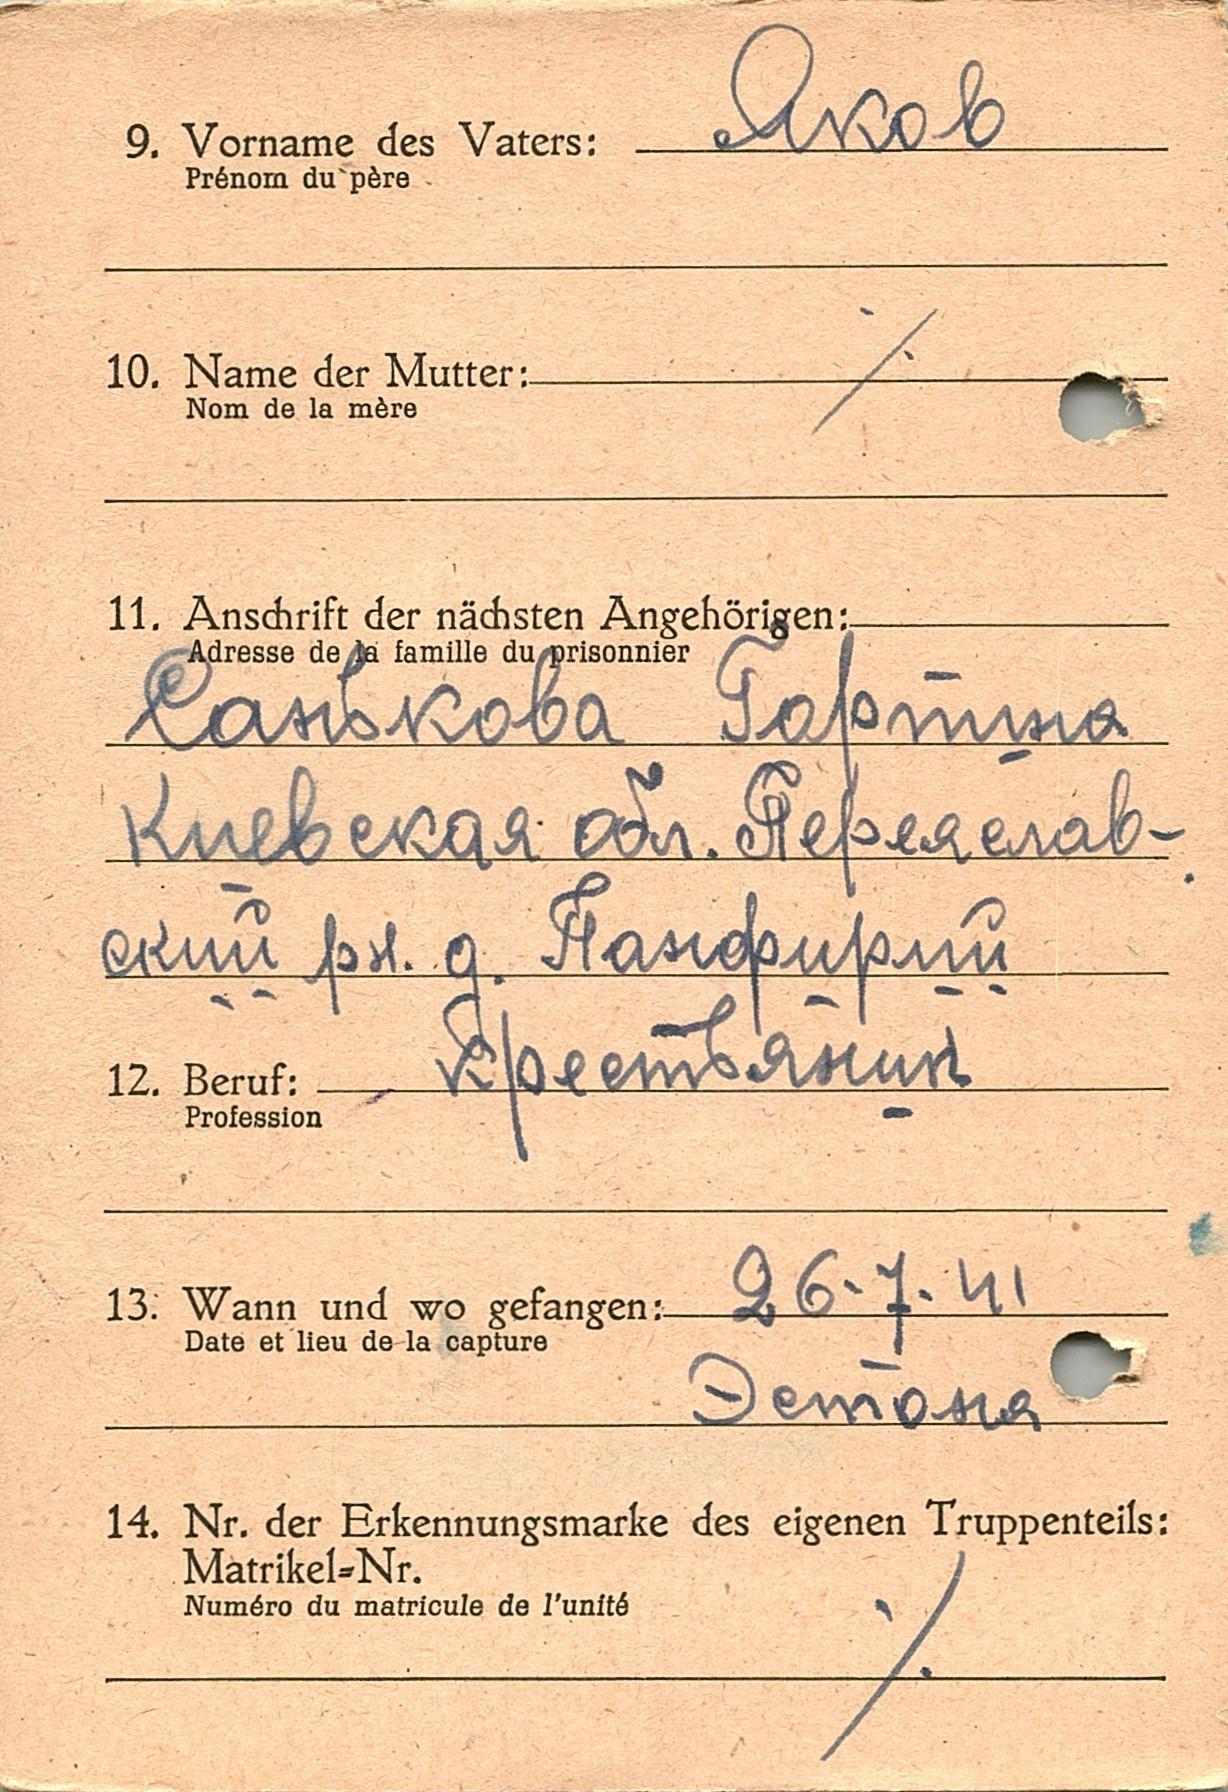 9. Vorname des Vaters: Яков
Prénom du père
10. Name der Mutter: ⁒
Nom de la mère
11. Anschrift der nächsten Angehörigen:
Adresse de la famille du prisonnier
Санькова Гортина
Киевская обл. Переяслав-
ский рн. д. Панфирий
12. Beruf: Крестьянин
Profession
13. Wann und wo gefangen: 26.7.41
Date et lieu de la capture
Эстоня
14. Nr. der Erkennungsmarke des eigenen Truppenteils:
Matrikel=Nr.
Numéro du matricule de l'unité
⁒